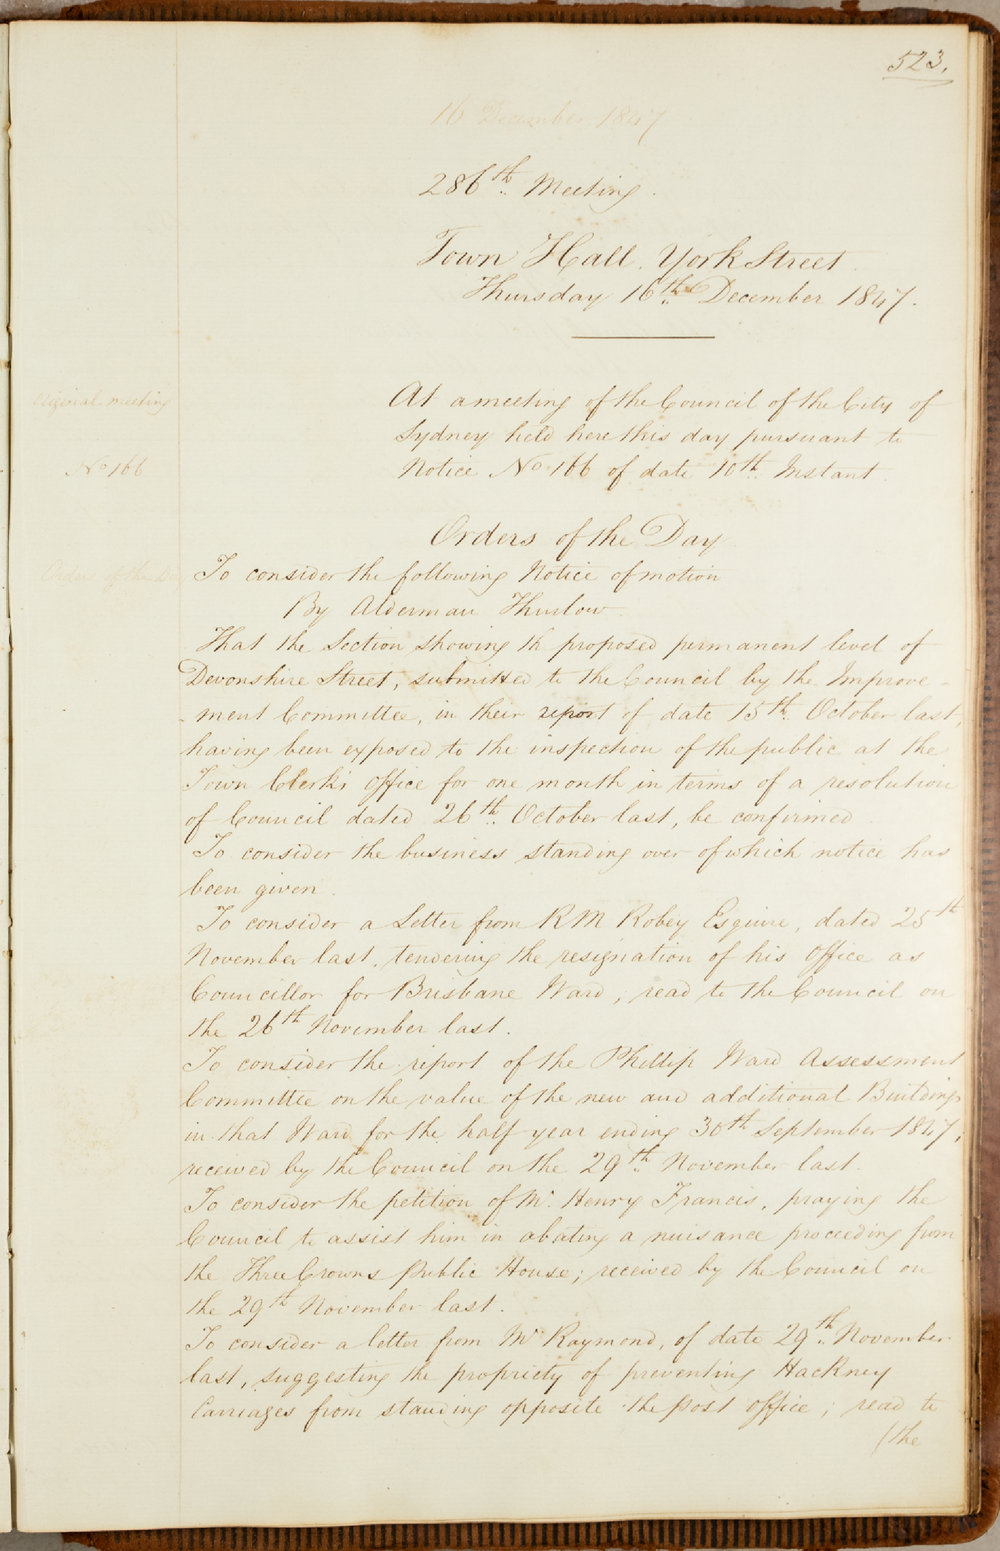 523.
16 December 1847
286th Meeting.
Town Hall. York Street.
Thursday 16th December 1847.
Original meeting
At a meeting of the Council of the City of
Sydney held here this day pursuant to
No 166
Notice No. 166 of date 10th Instant.
Orders of the Day
Orders of the Day
To consider the following Notice of motion
By Alderman Thurlow.
That the Section showing th proposed permanent level of
Devonshire Street, submitted to the Council by the Improve-
-ment Committee, in their report of date 15th October last,
having been exposed to the inspection of the public at the
Town Clerk's Office for one month in terms of a resolution
of Council dated 26th October last, be confirmed.
To consider the business standing over of which notice has
been given.
To consider a Letter from R M Robey Esquire, dated 25th
November last, tendering the resignation of his Office as
Councillor for Brisbane Ward; read to the Council on
the 26th November last.
To consider the report of the Phillip Ward Assessment
Committee on the value of the new and additional Buildings
in that Ward for the half year ending 30th September 1847;
received by the Council on the 29th November last.
To consider the petition of Mr. Henry Francis, praying the
Council to assist him in abating a nuisance proceeding from
the Three Crowns Public House; received by the Council on
the 29th November last.
To consider a letter from Mr Raymond, of date 29th November
last, suggesting the propriety of preventing Hackney
Carriages from standing opposite the post office; read to
(the